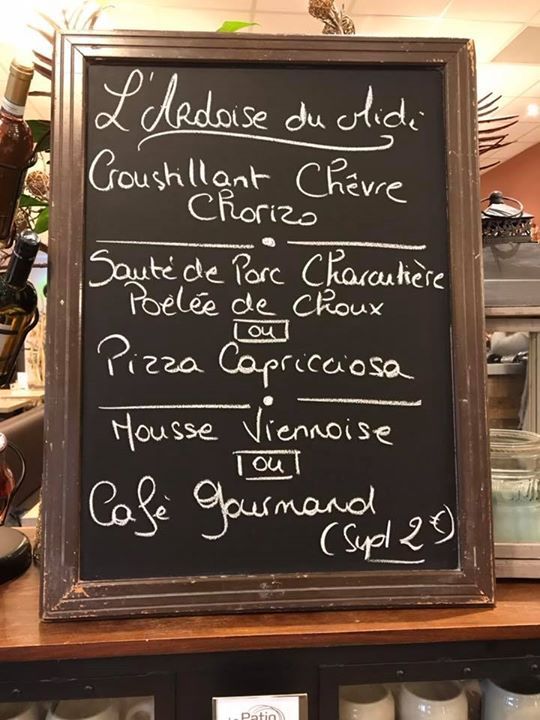 L'Ardoise du Midi
Croustillant Chèvre
Chorizo
Sauté de Porc Charcutière
Poêlée de Choux
ou
Pizza Capricciosa
Mousse Viennoise
ou
Café Gourmand
(Supl 2€)
le Patio